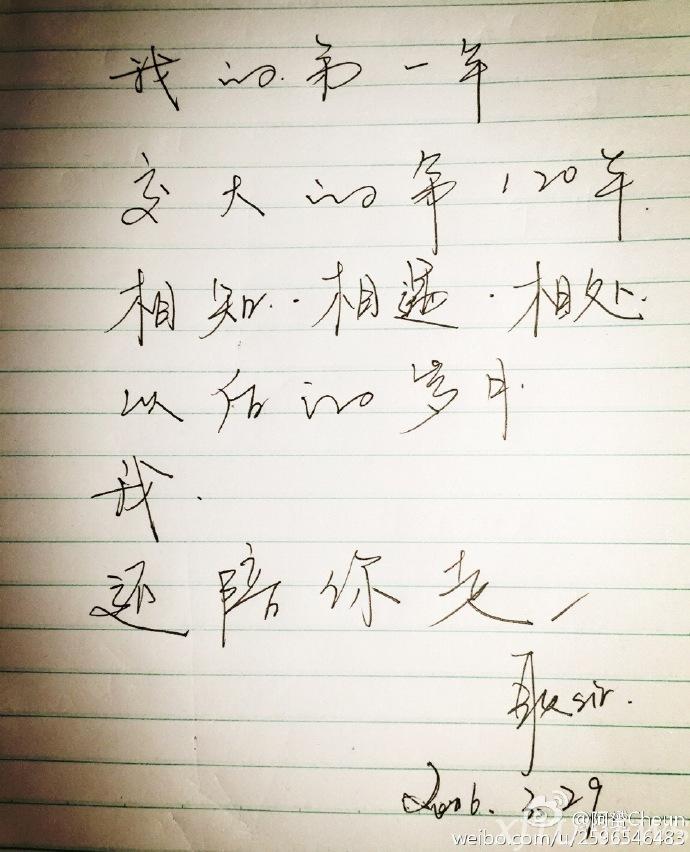 我的第一年
交大的第120年
相知·相遇·相处
以后的岁月
我.
还陪你走
sir.
2016. 3. 29
@阿酱Cheun
weibo.com/u/2596546483